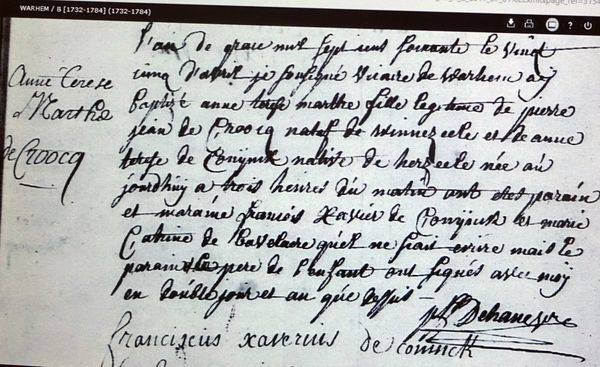 WARHEM / B [1732-1784] (1732-1784)
L'an de grace mil sept cent soixante le vingt
cinq d'avril je soussigné vicaire de warhem ay
Anne Terese
baptisé anne terese marthe fille legitime de pierre
Marthe
jean de Croocq natif de winnezeele et de anne
de Croocq
terese de Conynck native de herzeele née au
jourdhuy a trois heures du matin ont etes parain
et maraine francois Xavier de Conynck et marie
Catrine de laquelle ne scait ecrire mais le
parain le pere de l'enfant ont signés avec moy
en double jour et an que dessus
franciscus xaverius de coninck